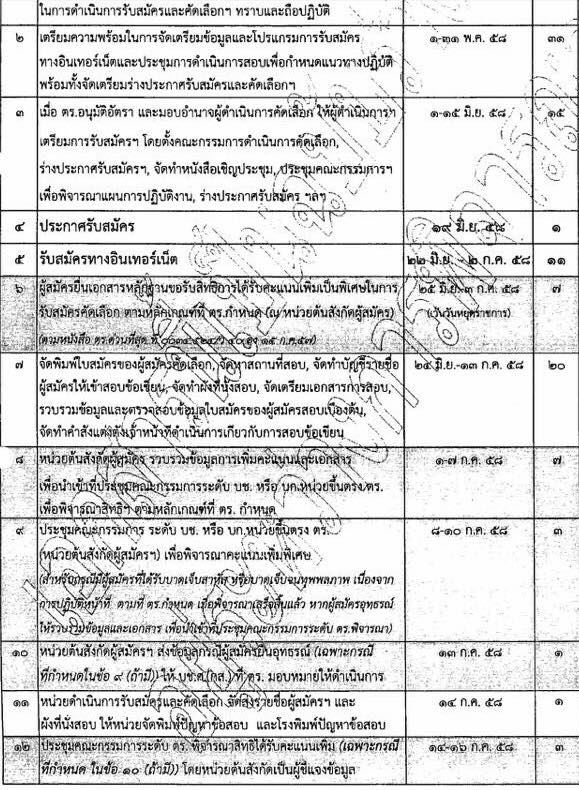 ในการดำเนินการรับสมัครและคัดเลือกฯ ทราบและถือปฏิบัติ
๒ เตรียมความพร้อมในการจัดเตรียมข้อมูลและโปรแกรมการรับสมัคร ๑-๓๑ พ.ค. ๕๘ ๓๑
ทางอินเทอร์เน็ตและประชุมการดำเนินการสอบเพื่อกำหนดแนวทางปฏิบัติ
พร้อมทั้งจัดเตรียมร่างประกาศรับสมัครและคัดเลือกฯ
๓ เมื่อ ตร.อนุมัติอัตรา และมอบอำนาจผู้ดำเนินการคัดเลือก ให้ผู้ดำเนินการฯ ๑-๑๕ มิ.ย. ๕๘ ๑๕
เตรียมการรับสมัครฯ โดยตั้งคณะกรรมการดำเนินการคัดเลือก,
ร่างประกาศรับสมัครฯ, จัดทำหนังสือเชิญประชุม, ประชุมคณะกรรมการฯ
เพื่อพิจารณาแผนการปฏิบัติงาน, ร่างประกาศรับสมัคร ฯลฯ
๔ ประกาศรับสมัคร ๑๙ มิ.ย. ๕๘ ๑
๕ รับสมัครทางอินเทอร์เน็ต ๒๒ มิ.ย. - ๒ ก.ค. ๕๘ ๑๑
๖ ผู้สมัครยื่นเอกสารหลักฐานขอรับสิทธิการได้รับคะแนนเพิ่มเป็นพิเศษในการ ๒๕ มิ.ย.-๓ ก.ค. ๕๘ ๗
รับสมัครคัดเลือก ตามหลักเกณฑ์ที่ ตร.กำหนด (ณ หน่วยต้นสังกัดผู้สมัคร) (เว้นวันหยุดราชการ)
(ตามหนังสือ ตร.ด่วนที่สุด ที่ ๑๕ ก.ค.๕๗)
๗ จัดพิมพ์ใบสมัครของผู้สมัครคัดเลือก, จัดหาสถานที่สอบ, จัดทำบัญชีรายชื่อ ๒๔ มิ.ย.-๑๓ ก.ค. ๕๘ ๒๐
ผู้สมัครให้เข้าสอบข้อเขียน, จัดทำผังที่นั่งสอบ, จัดเตรียมเอกสารการสอบ,
รวบรวมข้อมูลและตรวจสอบข้อมูลใบสมัครของผู้สมัครสอบเบื้องต้น,
จัดทำคำสั่งแต่งตั้งเจ้าหน้าที่ดำเนินการเกี่ยวกับการสอบข้อเขียน
๘ หน่วยต้นสังกัดผู้สมัคร รวบรวมข้อมูลการเพิ่มคะแนนและเอกสาร ๑-๗ ก.ค. ๕๘ ๗
เพื่อนำเข้าที่ประชุมคณะกรรมการระดับ บช. หรือ บก.หน่วยขึ้นตรง ตร.
เพื่อพิจารณาสิทธิฯ ตามหลักเกณฑ์ที่ ตร. กำหนด
๙ ประชุมคณะกรรมการ ระดับ บช. หรือ บก.หน่วยขึ้นตรง ตร. ๘-๑๐ ก.ค. ๕๘ ๓
(หน่วยต้นสังกัดผู้สมัครฯ) เพื่อพิจารณาคะแนนเพิ่มพิเศษ
(สำหรับกรณีมีผู้สมัครที่ได้รับบาดเจ็บสาหัส หรือบาดเจ็บจนทุพพลภาพ เนื่องจาก
การปฏิบัติหน้าที่ ตามที่ ตร.กำหนด เมื่อพิจารณาเสร็จสิ้นแล้ว หากผู้สมัครอุทธรณ์
ให้รวบรวมข้อมูลและเอกสาร เพื่อนำเข้าที่ประชุมคณะกรรมการระดับ ตร.พิจารณา)
๑๐ หน่วยต้นสังกัดผู้สมัครฯ ส่งข้อมูลกรณีผู้สมัครยื่นอุทธรณ์ (เฉพาะกรณี ๑๓ ก.ค. ๕๘ ๑
ที่กำหนดในข้อ ๙ (ถ้ามี)) ให้ บช.ศ.(กส.) ที่ ตร. มอบหมายให้ดำเนินการ
๑๑ หน่วยดำเนินการรับสมัครและคัดเลือก จัดส่งรายชื่อผู้สมัครฯ และ ๑๔ ก.ค. ๕๘ ๑
ผังที่นั่งสอบ ให้หน่วยจัดพิมพ์ปัญหาข้อสอบ และโรงพิมพ์ปัญหาข้อสอบ
๑๒ ประชุมคณะกรรมการระดับ ตร. พิจารณาสิทธิได้รับคะแนนเพิ่ม (เฉพาะกรณี ๑๔-๑๖ ก.ค. ๕๘ ๓
ที่กำหนด ในข้อ ๑๐ (ถ้ามี)) โดยหน่วยต้นสังกัดเป็นผู้ชี้แจงข้อมูล